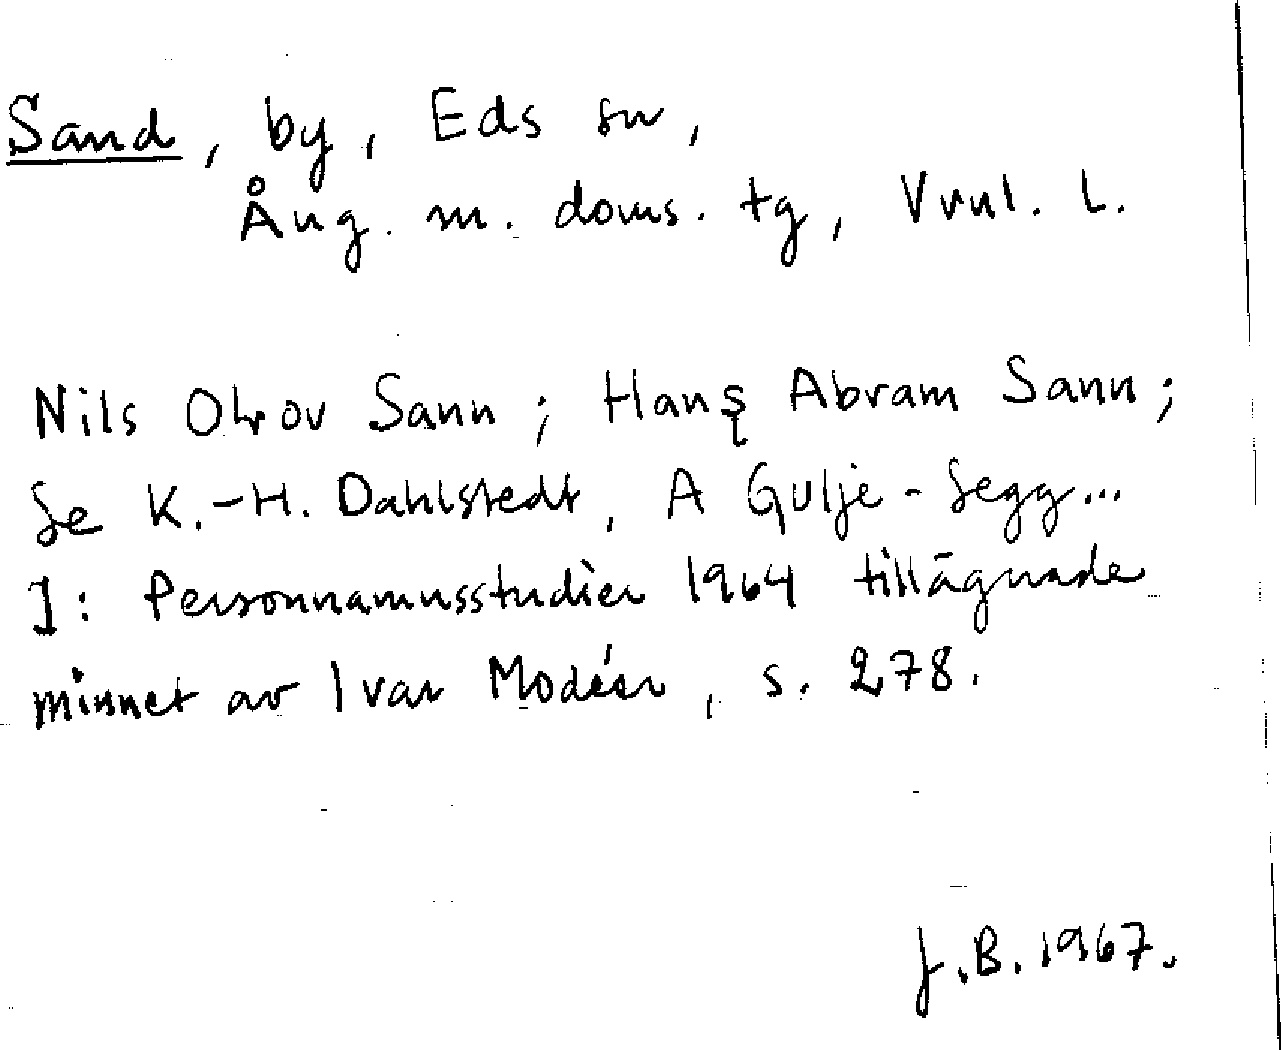 Sand, by, Eds sn,
Ång. m. doms. tg, Vnnl. L.
Nils Olrov Sann; Hans Abram Sann;
Se K.-H. Dahlstedt, A Gulje-Segg...
I: Personnamnsstudier 1964 tillägnade
minnet av Ivar Modéer, s. 278.
J.B. 1967.